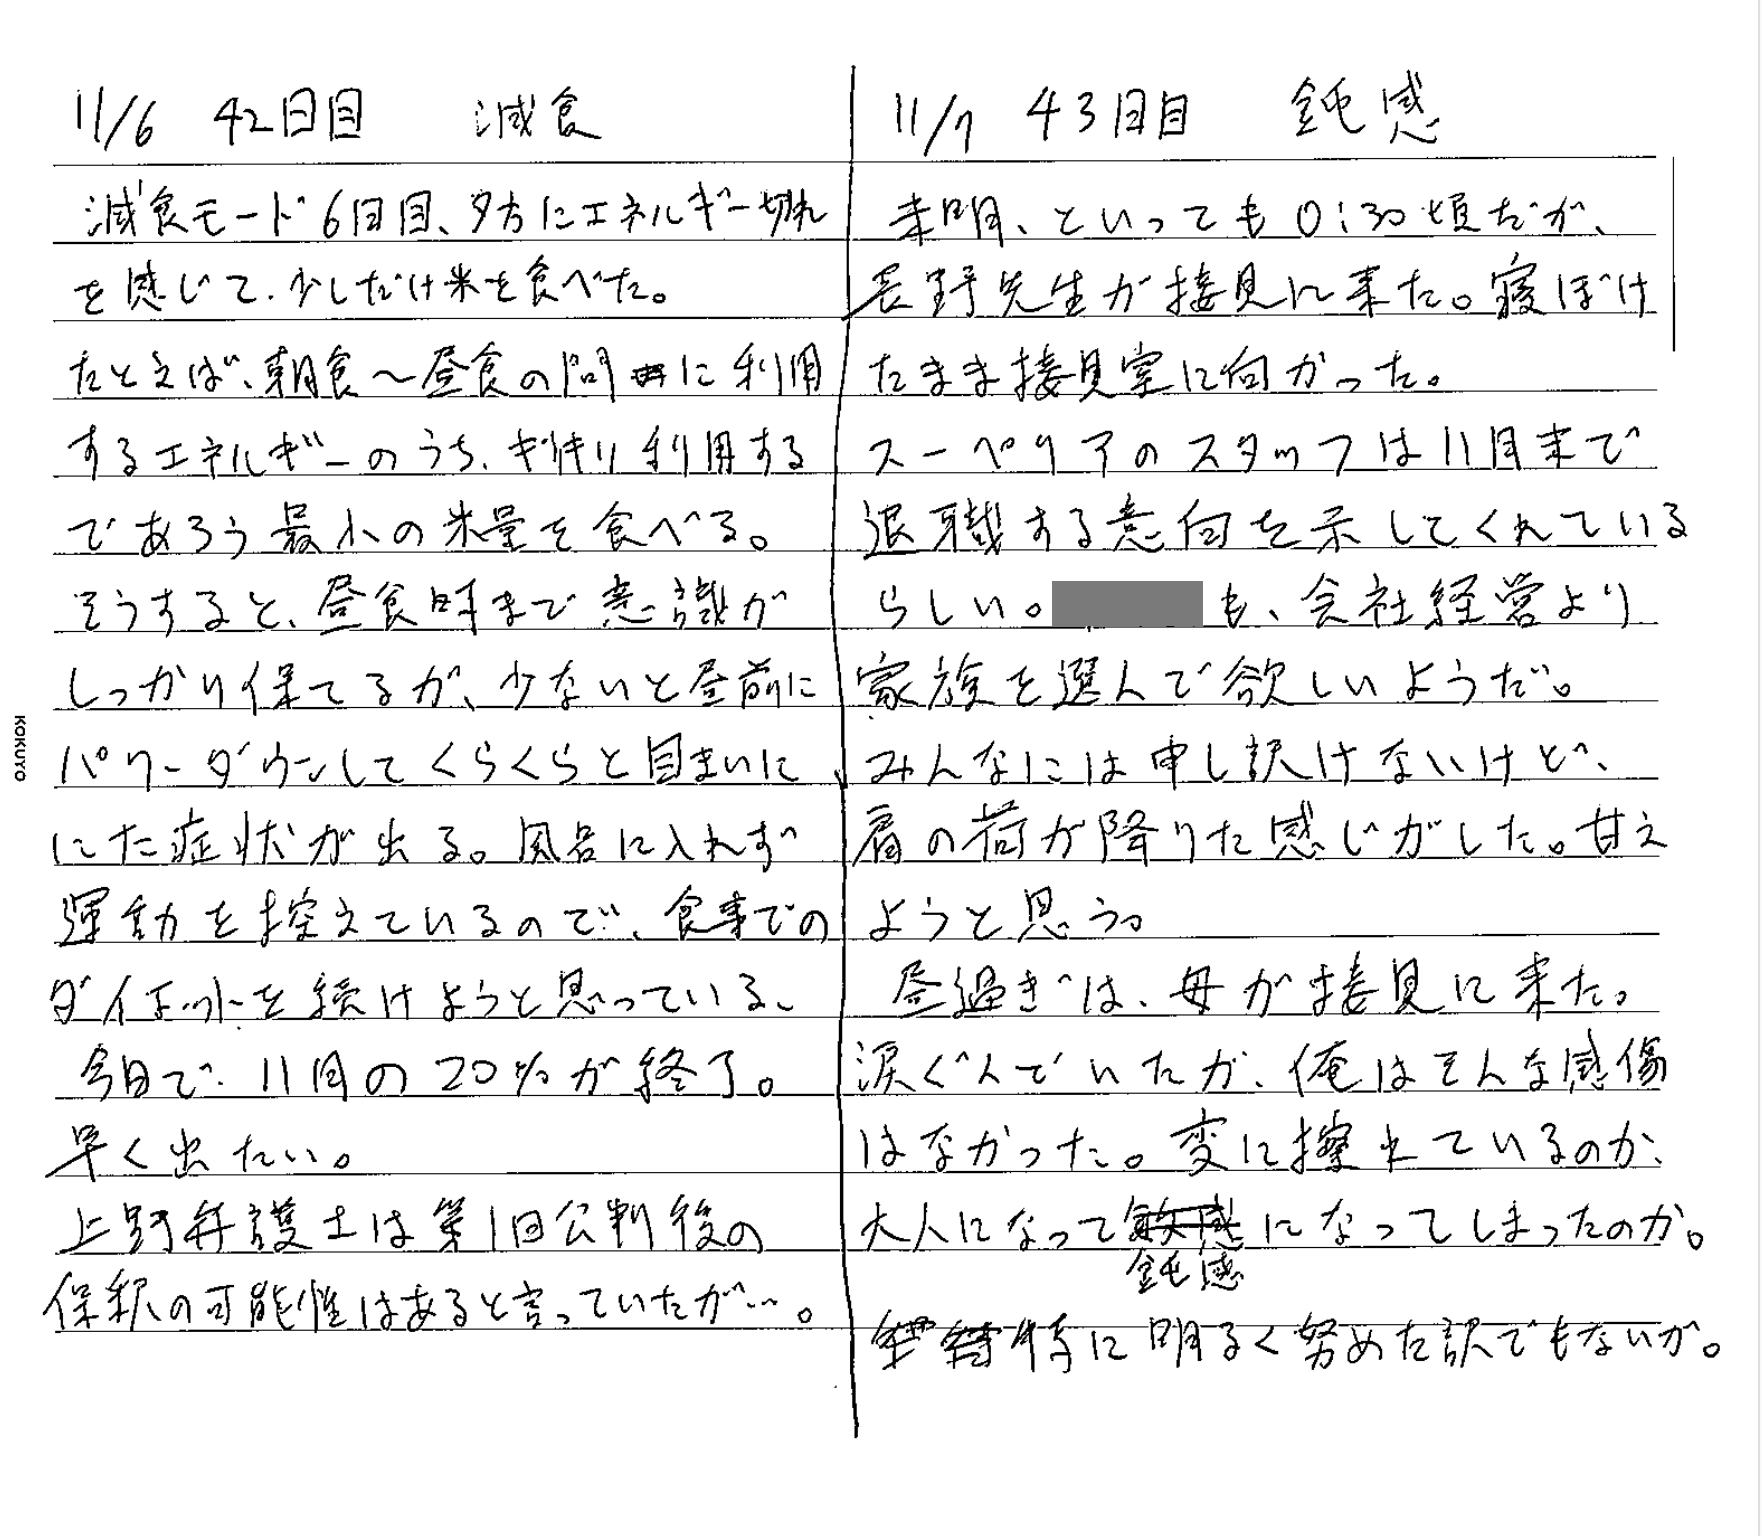 11/6 42日目 減食
減食モード6日目、夕方にエネルギー切れ
を感じて、少しだけ米を食べた。
たとえば、朝食〜昼食の間に利用
するエネルギーのうち、ギリギリ利用する
であろう最小の米量を食べる。
そうすると、昼食時まで意識が
しっかり保てるが、少ないと昼前に
パワーダウンしてくらくらと目まいに
にた症状が出る。風呂に入れず
運動を控えているので、食事での
ダイエットを続けようと思っている、
今日で、11月の20%が終了。
早く出たい。
上野弁護士は第1回公判後の
保釈の可能性はあると言っていたが…。
11/7 43日目 鈍感
未明、といっても0:30頃だが、
長野先生が接見に来た。寝ぼけ
たまま接見室に向かった。
スーペリアのスタッフは11月末で
退職する意向を示してくれている
らしい。も、会社経営より
家族を選んで欲しいようだ。
みんなには申し訳けないけど、
肩の荷が降りた感じがした。甘え
ようと思う。
昼過ぎは、母が接見に来た。
涙ぐんでいたが、俺はそんな感傷
はなかった。変に擦れているのか、
大人になって敏感になってしまったのか。
鈍感
特に明るく努めた訳でもないが。
KOKUYO